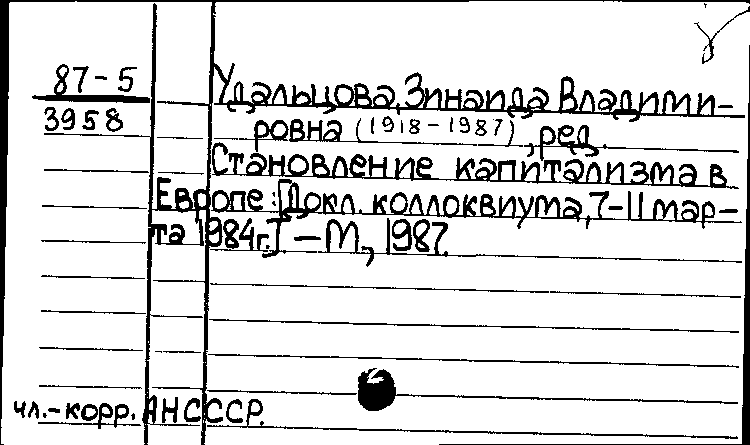 87-5
3958
Удальцова, Зинаида Владими-
ровна (1918-1987), ред.
Становление капитализма в
Европе: [Докл. коллоквиума, 7-11 мар-
та 1984г.] - М., 1987.
чл.-корр. АНСССР.